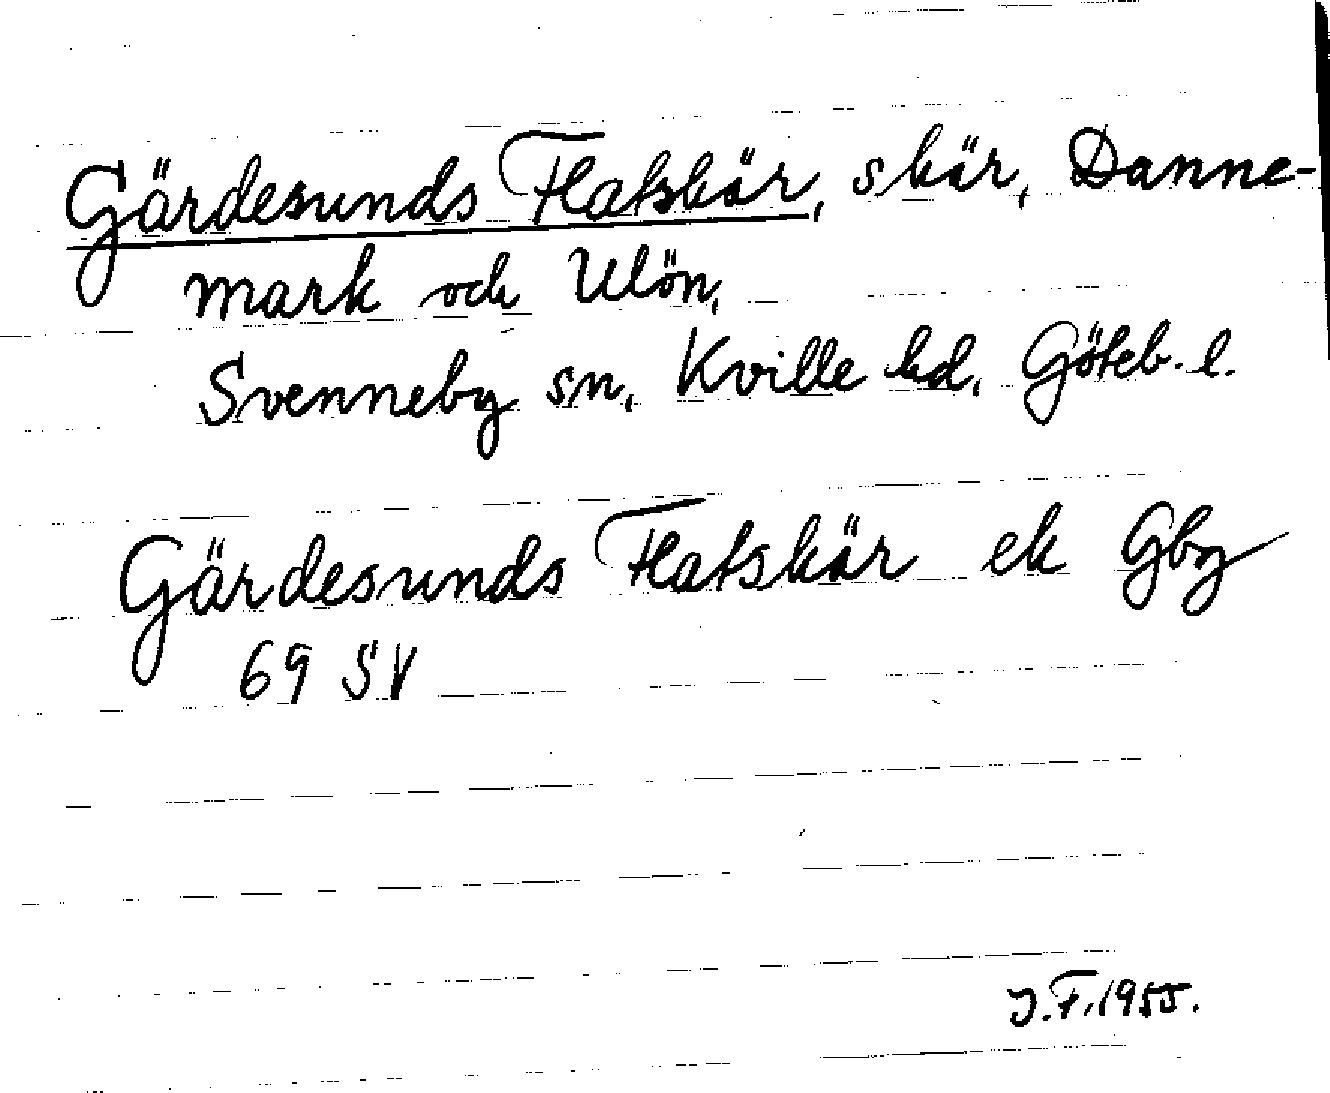 Gärdesunds Flatskär, skär, Danne-
mark och Ulön,
Svenneby sn, Kville hd, Göteb. l.
Gärdesunds Flatskär ek Gbg
69 SV
J.F. 1955.